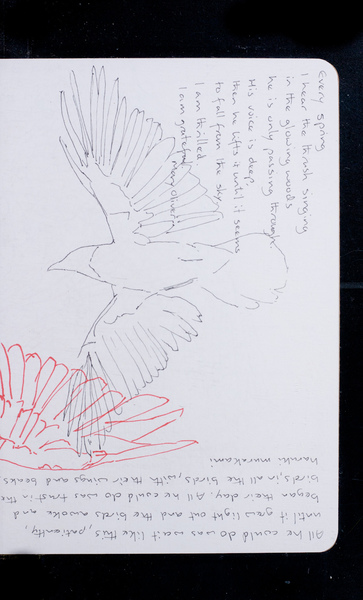 Every spring
I hear the thrush singing
in the glowing woods
he is only passing through.
His voice is deep,
then he lifts it until it seems
to fall from the sky.
I am thrilled.
I am grateful.
Mary Oliver
All he could do was wait like this, patiently,
until it grew light out and the birds awoke and
began their day. All he could do was trust in the
birds, in all the birds, with their wings and beaks
haruki murakami